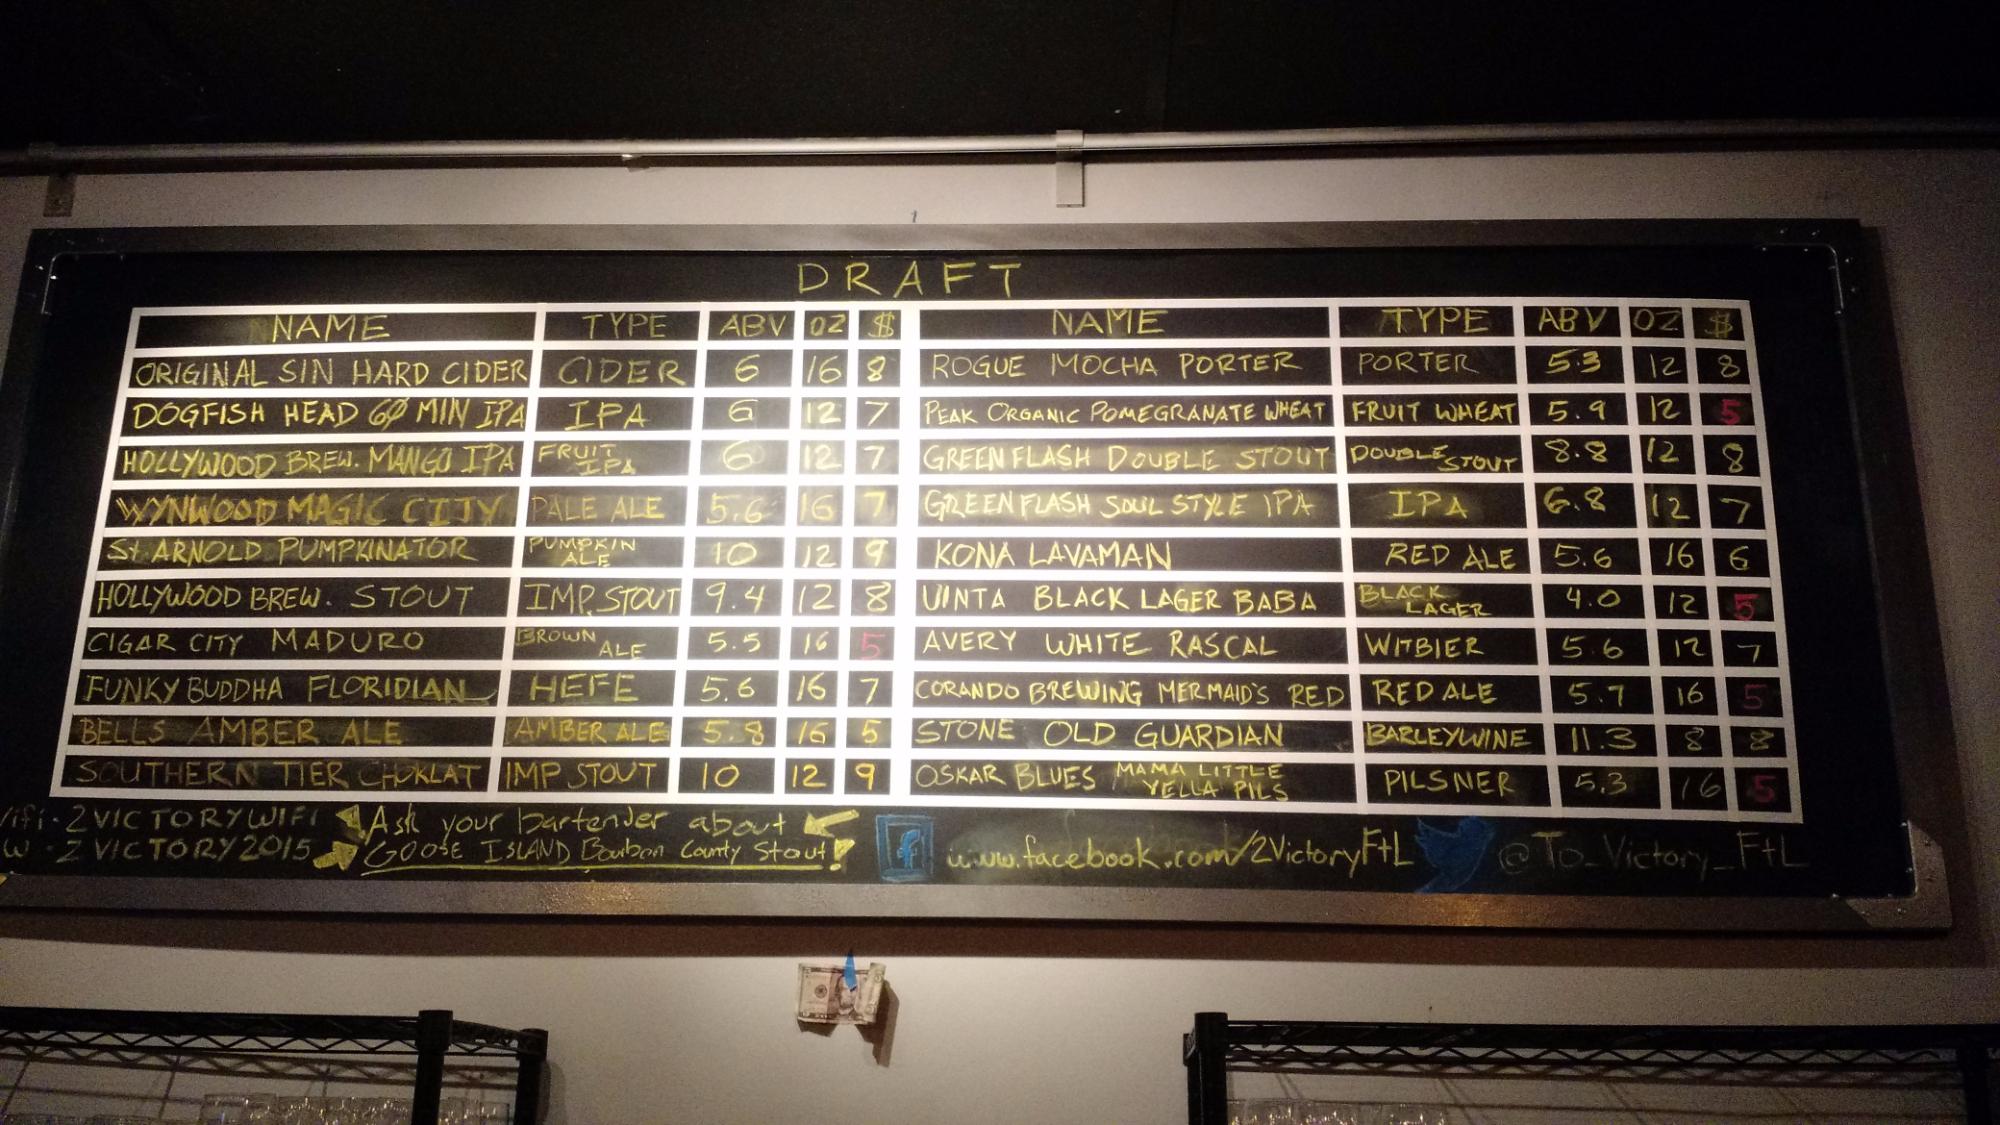 DRAFT
NAME TYPE ABV OZ $
ORIGINAL SIN HARD CIDER CIDER 6 16 8
DOGFISH HEAD 60 MIN IPA IPA 6 12 7
HOLLYWOOD BREW. MANGO IPA FRUIT IPA 6 12 7
WYNWOOD MAGIC CITY PALE ALE 5.6 16 7
St ARNOLD PUMPKINATOR PUMPKIN ALE 10 12 9
HOLLYWOOD BREW. STOUT IMP. STOUT 9.4 12 8
CIGAR CITY MADURO BROWN ALE 5.5 16 5
FUNKY BUDDHA FLORIDIAN HEFE 5.6 16 7
BELLS AMBER ALE AMBER ALE 5.8 16 5
SOUTHERN TIER CHOKLAT IMP STOUT 10 12 9
NAME TYPE ABV OZ $
ROGUE MOCHA PORTER PORTER 5.3 12 8
PEAK ORGANIC POMEGRANATE WHEAT FRUIT WHEAT 5.9 12 5
GREEN FLASH DOUBLE STOUT DOUBLE STOUT 8.8 12 8
GREEN FLASH SOUL STYLE IPA IPA 6.8 12 7
KONA LAVAMAN RED ALE 5.6 16 6
UINTA BLACK LAGER BABA BLACK LAGER 4.0 12 5
AVERY WHITE RASCAL WITBIER 5.6 12 7
CORANDO BREWING MERMAID'S RED RED ALE 5.7 16 5
STONE OLD GUARDIAN BARLEYWINE 11.3 8 8
OSKAR BLUES MAMA LITTLE YELLA PILS PILSNER 5.3 16 5
Wifi - 2VICTORYWIFI
W - 2VICTORY2015
Ask your bartender about
GOOSE ISLAND Bourbon County Stout!
f www.facebook.com/2VictoryFtL
@To_Victory_FtL